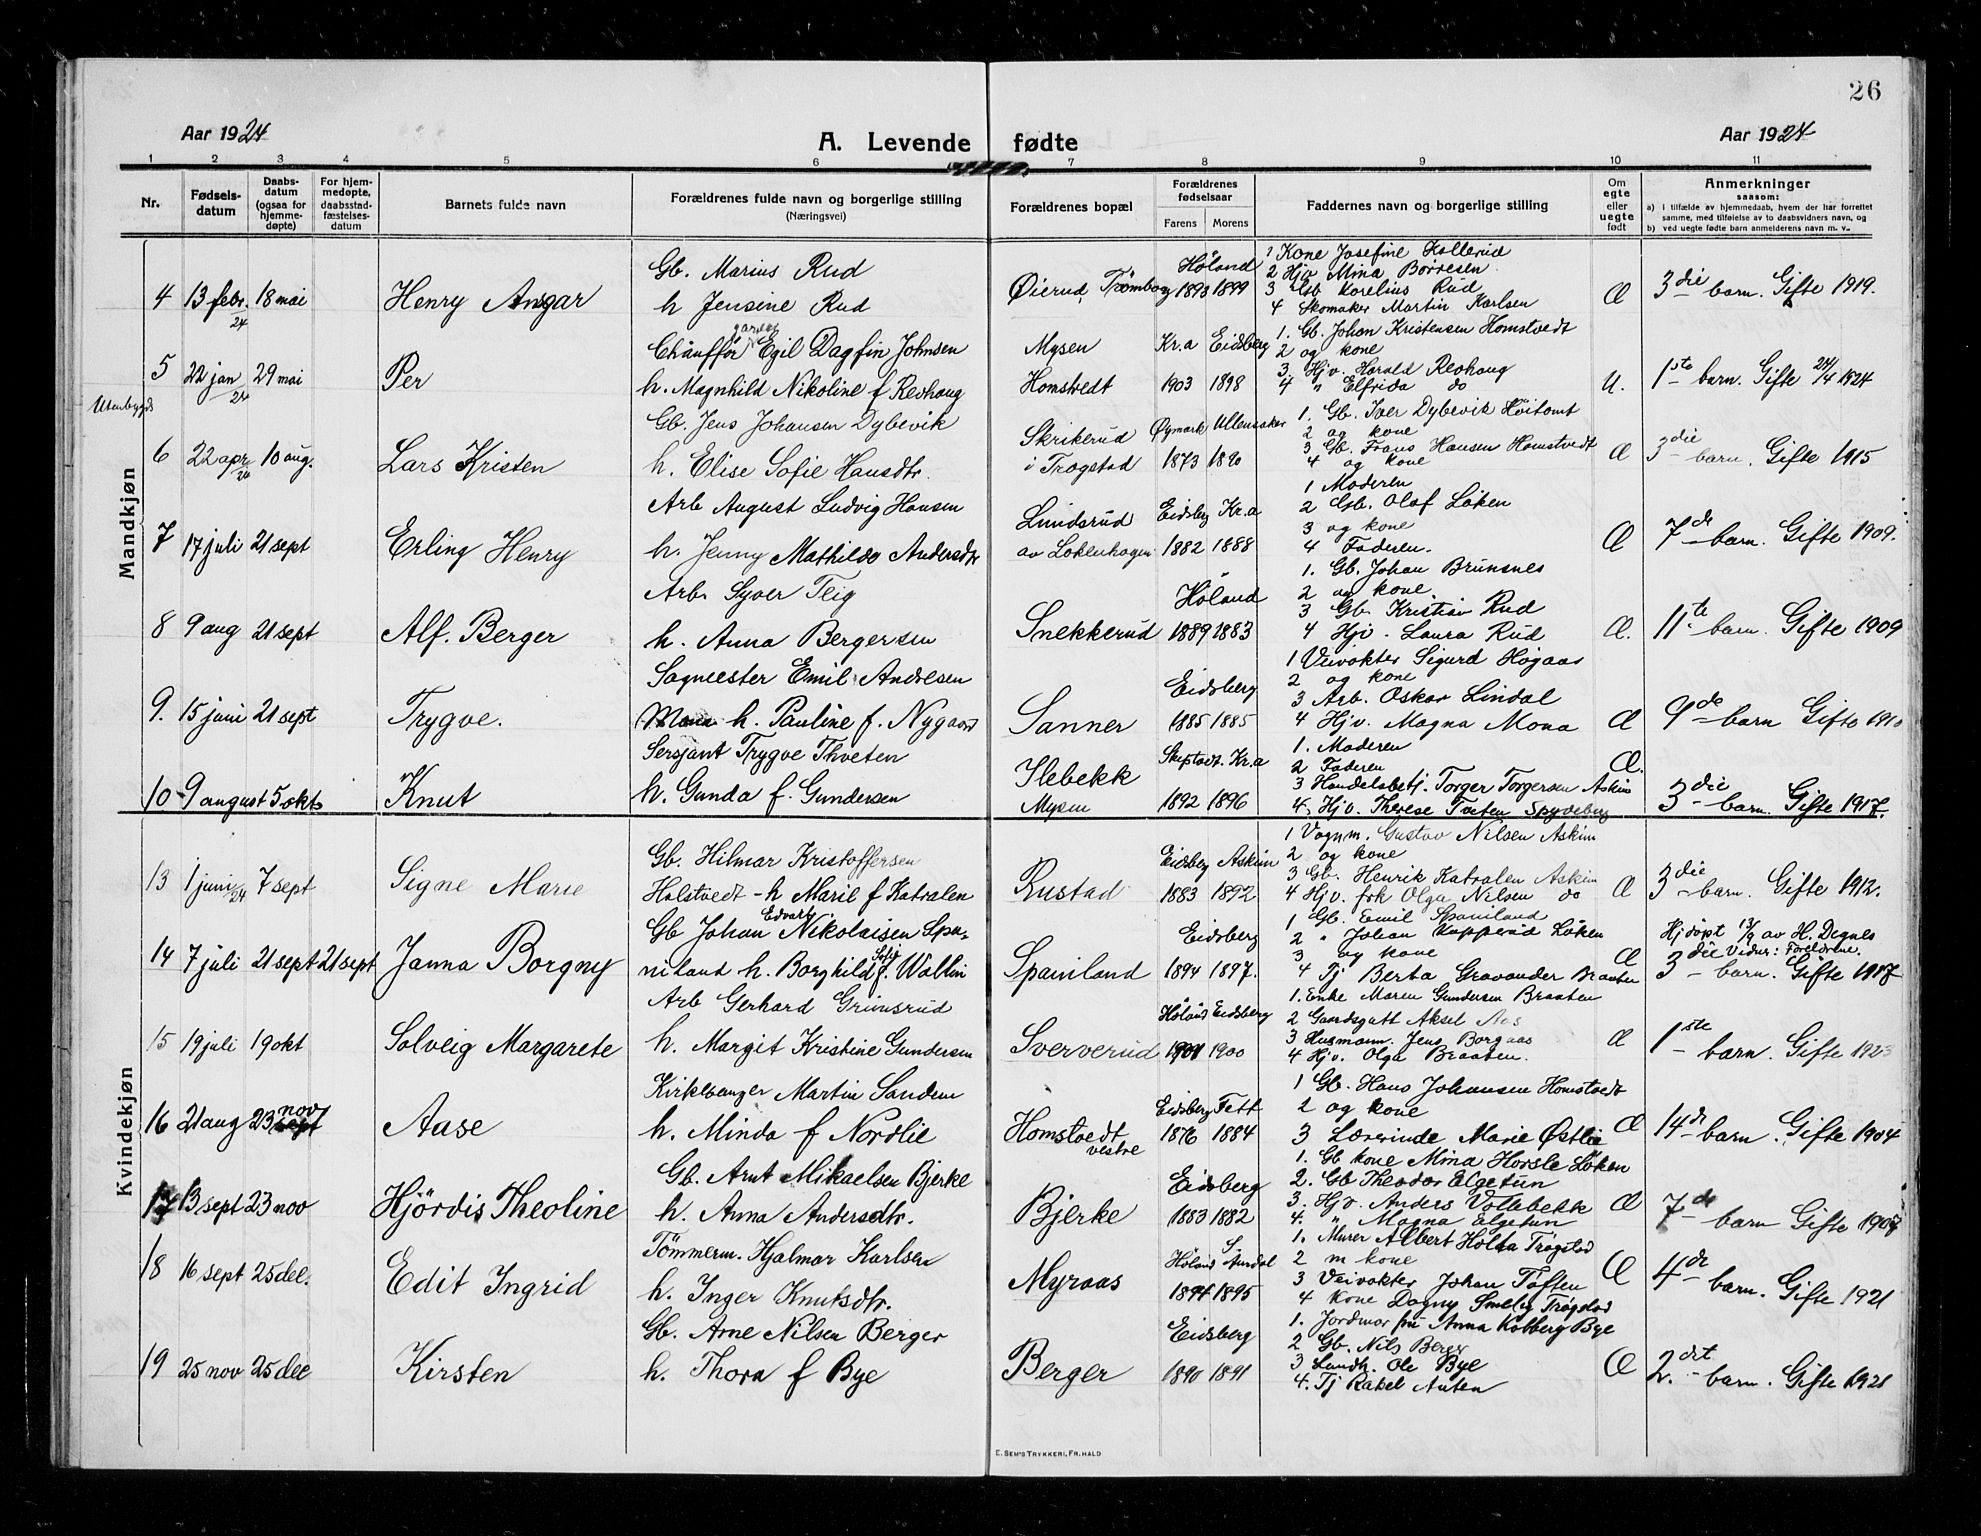 26
Aar 1924
A. Levende fødte
Aar 1924
1 2 3 4 5 6 7 8 9 10 11
Nr.
Fødsels-
datum
Daabs-
datum
(ogsaa for
hjemme-
døpte)
For hjem-
medøpte,
daabsstad-
fæstelses-
datum
Barnets fulde navn
Forældrenes fulde navn og borgerlige stilling
(Næringsvei)
Forældrenes bopæl
Forældrenes
fødselsaar
Farens Morens
Faddernes navn og borgerlige stilling
Om
egte
eller
uegte
født
Anmerkninger
saasom:
a) i tilfælde av hjemmedaab, hvem der har forrettet
samme, med tilføielse av to daabsvidners navn, og
b) ved uegte fødte barn anmelderens navn m. v..
Mandkjøn
4 13 febr. 24 18 mai
Henry Ansgar
Gb. Marius Rud
h Jensine Rud
Øierud, Trømborg
Høland
1893 1899
1 Kone Josefine Kollerud
2 Hjv Mina Børresen
3 Gb Korelius Rud
4 Skomaker Martin Karlsen
Æ
3die barn. Gifte 1919.
5 22 jan 24 29 mai
Utenbygds
Per
Chauffør Egil Dagfin Johnsen
h. Magnhild Nikoline f Revhaug
Mysen
Homstvedt
Kr.a Eidsberg
1903 1898
1. Gb. Johan Kristensen Homstvedt
2 og kone
3 Hjv. Harald Revhaug
4 " Elfrida do
U.
1ste barn. Gifte 24/4 1924
6 22 apr 24 10 aug.
Lars Kristen
Gb. Jens Johansen Dybevik
h. Elise Sofie Hansdtr.
Skrikerud
i Trøgstad
Øymark Ullensaker
1873 1890
1. Gb. Iver Dybevik Høitomt
2 og kone
3 Gb. Frans Hansen Homstvedt
4 og kone
Æ
3die barn. Gifte 1915
7 17 juli 21 sept
Erling Henry
Arb August Ludvig Hansen
h. Jenny Mathilde Andersdtr
Lundsrud
av Løkenhagen
Eidsberg Kr.a
1882 1888
1 Moderen
2 Gb. Olaf Løken
3 og kone
4 Faderen.
Æ
7de barn. Gifte 1909.
8 9 aug 21 sept
Alf. Berger
Arb. Syver Teig
h. Anna Bergersen
Snekkerud
Høland
1889 1883
1. Gb. Johan Brunsnes
2 og kone.
3 Gb. Kristian Rud
4 Hjv. Laura Rud
Æ.
11te barn. Gifte 1909
9. 15 juni 21 sept
Trygve.
Sagmester Emil Andresen
Mona h. Pauline f. Nygaard
Sanner
Eidsberg
1885 1885
1 Veivokter Sigurd Høgaas
2 og kone
3 Arb. Oskar Lindal
4 Hjv. Magna Mona
Æ
9de barn Gifte 1910
10 9 august 5 okt
Knut
Sersjant Trygve Thveten
h. Gunda f. Gundersen
Slebekk
Mysen
Skiptvedt. Kr.a
1892 1896
1. Moderen
2 Faderen
3 Handelsbetj. Torger Torgersen Askim
4. Hjv. Therese Tveten Spydeberg
Æ.
3die barn. Gifte 1917.
Kvindekjøn
13 1 juni 24 7 sept
Signe Marie
Gb. Hilmar Kristoffersen
Holstvedt - h Marie f Katralen
Rustad
Eidsberg Askim
1883 1892
1 Vognm. Gustav Nilsen Askim
2 og kone
3 Gb. Henrik Katralen Askim
4 Hjv. frk Olga Nilsen do
Æ
3die barn. Gifte 1912.
14 7 juli 21 sept 21 sept
Janna Borgny
Gb Johan Edvart Nikolaisen Spa-
niland h. Borghild Sofie f. Wallin
Spaniland
Eidsberg
1894 1897.
1 Gb. Emil Spaniland
2 " Johan Kopperud Løken
3 og kone
4 Tj Berta Gravander Braaten
Æ
Hjdøpt 13/9 av H. Degnes
Vidner: Foreldrene.
3die barn. Gifte 1917
15 19 juli 19 okt
Solveig Margarete
Arb Gerhard Grimsrud
h. Margit Kristine Gundersen
Sververud
Høland Eidsberg
1901 1900
1. Enke Maren Gundersen Braaten
2 Gaardsgutt Aksel Aas
3 Husmann. Jens Borgaas
4 Hjv. Olga Braaten.
Æ
1ste barn. Gifte 1923
16 21 aug 23 nov
Aase
Kirkesanger Martin Sandem
h. Minda f Nordlie
Homstvedt
vestre
Eidsberg Fett
1876 1884
1 Gb. Hans Johansen Homstvedt
2 og kone
3 Lærerinde Marie Østlie
Æ
14de barn. Gifte 1904
17 13 sept 23 nov
Hjördis Theoline
Gb. Arnt Mikaelsen Bjerke
h. Anna Andersdtr.
Bjerke
Eidsberg
1883 1882
1. Gb kone Mina Horsle Løken
2. Gb Theodor Elgetun
3. Hjv. Anders Vollebekk
4. " Magna Elgetun
Æ
7de barn Gifte 1907
18 16 sept 25 dec.
Edit Ingrid
Tömmerm. Hjalmar Karlsen
h. Inger Knutsdtr.
Myraas
Høland S. Aurdal
1894 1895
1. Murer Albert Holta Trøgstad
2 m kone
3 Veivokter Johan Toften
4 Kone Dagny Smeby Trøgstad
Æ
4de barn. Gifte 1921
19 25 nov 25 dec
Kirsten
Gb. Arne Nilsen Berger
h. Thora f Bye
Berger
Eidsberg
1890 1891
1. Jordmor fru Anna Kolberg Bye
2 Gb. Nils Berger
3 Landh. Ole Bye
4. Tj Rakel Anten
Æ
2. barn. Gifte 1921
E. SEM'S TRYKKERI, FR.HALD